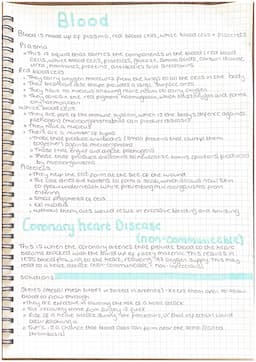 Blood
Blood is made up of plasma, red blood cells, white blood cells + platelets
Plasma
• This is liquid that carries the components in the blood: red blood
cells, white blood cells, platelets, glucose, amino acids, carbon dioxide,
urea, hormones, proteins, antibodies and antitoxins
Red blood cells
• They carry oxygen molecules from the lungs to all the cells in the body
• Their biconcave disc shape provides a large surface area
• They have no nucleus allowing more room to carry oxygen
• They contain the red pigment haemoglobin, which binds to oxygen and forms
oxyhaemoglobin
White blood cells
• They are part of the immune system, which is the body's defence against
pathogens (microorganisms that can produce disease)
• They have a nucleus
• There are a number of types:
• Those that produce antibodies (small proteins that clump them
together) against microorganisms
• Those that engulf and digest pathogens
• Those that produce antitoxins to neutralise toxins (poisons) produced
by microorganisms
Platelets
• They help the clot form at the site of the wound
• The clot dries and hardens to form a scab, which allows new skin
to grow underneath while preventing microorganisms from
entering
• Small fragments of cells
• No nucleus
• Without them, cuts would result in excessive bleeding and bruising
Coronary heart Disease
(non-communicable)
This is when the coronary arteries that provide blood to the heart
become blocked with the build up of fatty material. This results in
less blood flowing to the heart, reducing its oxygen supply. This may
lead to a heart attack.
Solutions
Stents (metal mesh tubes inserted in arteries) - keeps them open to allow
blood to flow through
• They are effective in lowering the risk of a heart attack
• The recovery time from surgery is quick
• Risk of a heart attack during the procedure, or that infection could
occur following it
• There is a chance that blood clots can form near the stent (called
thrombosis)